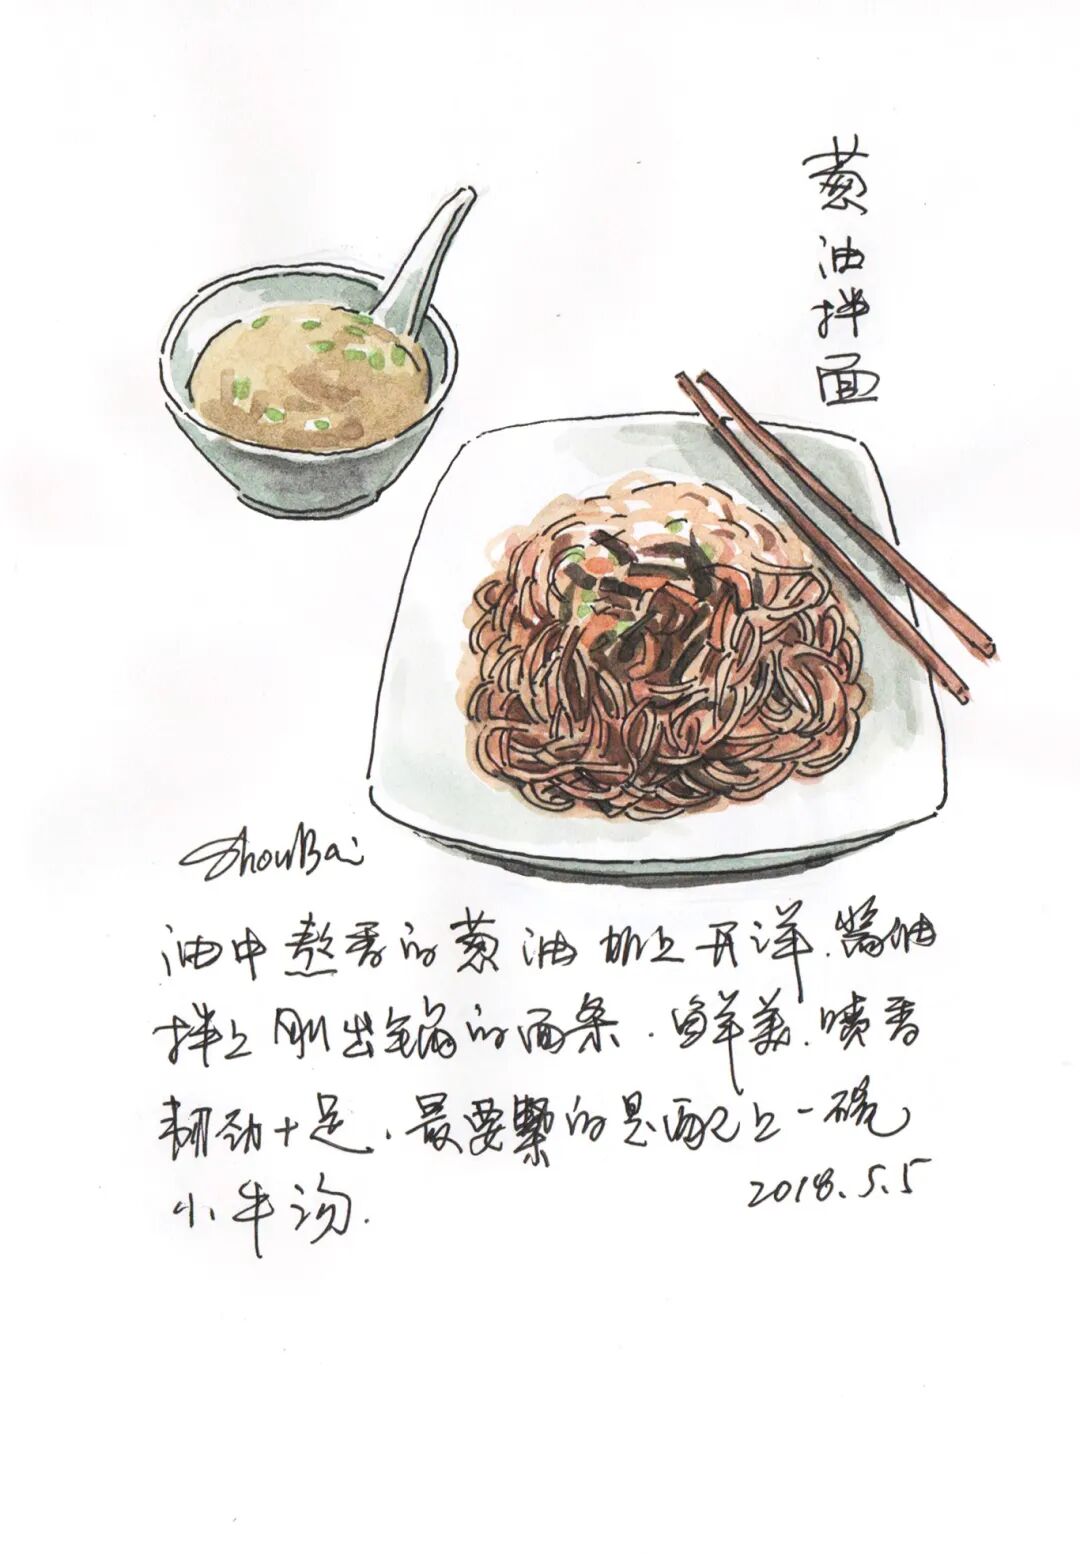 葱油拌面
ShouBai
油中熬香的葱油加上开洋.酱油
拌上刚出锅的面条.鲜美.喷香
韧劲十足.最要紧的是配上一碗
小牛汤.
2018.5.5